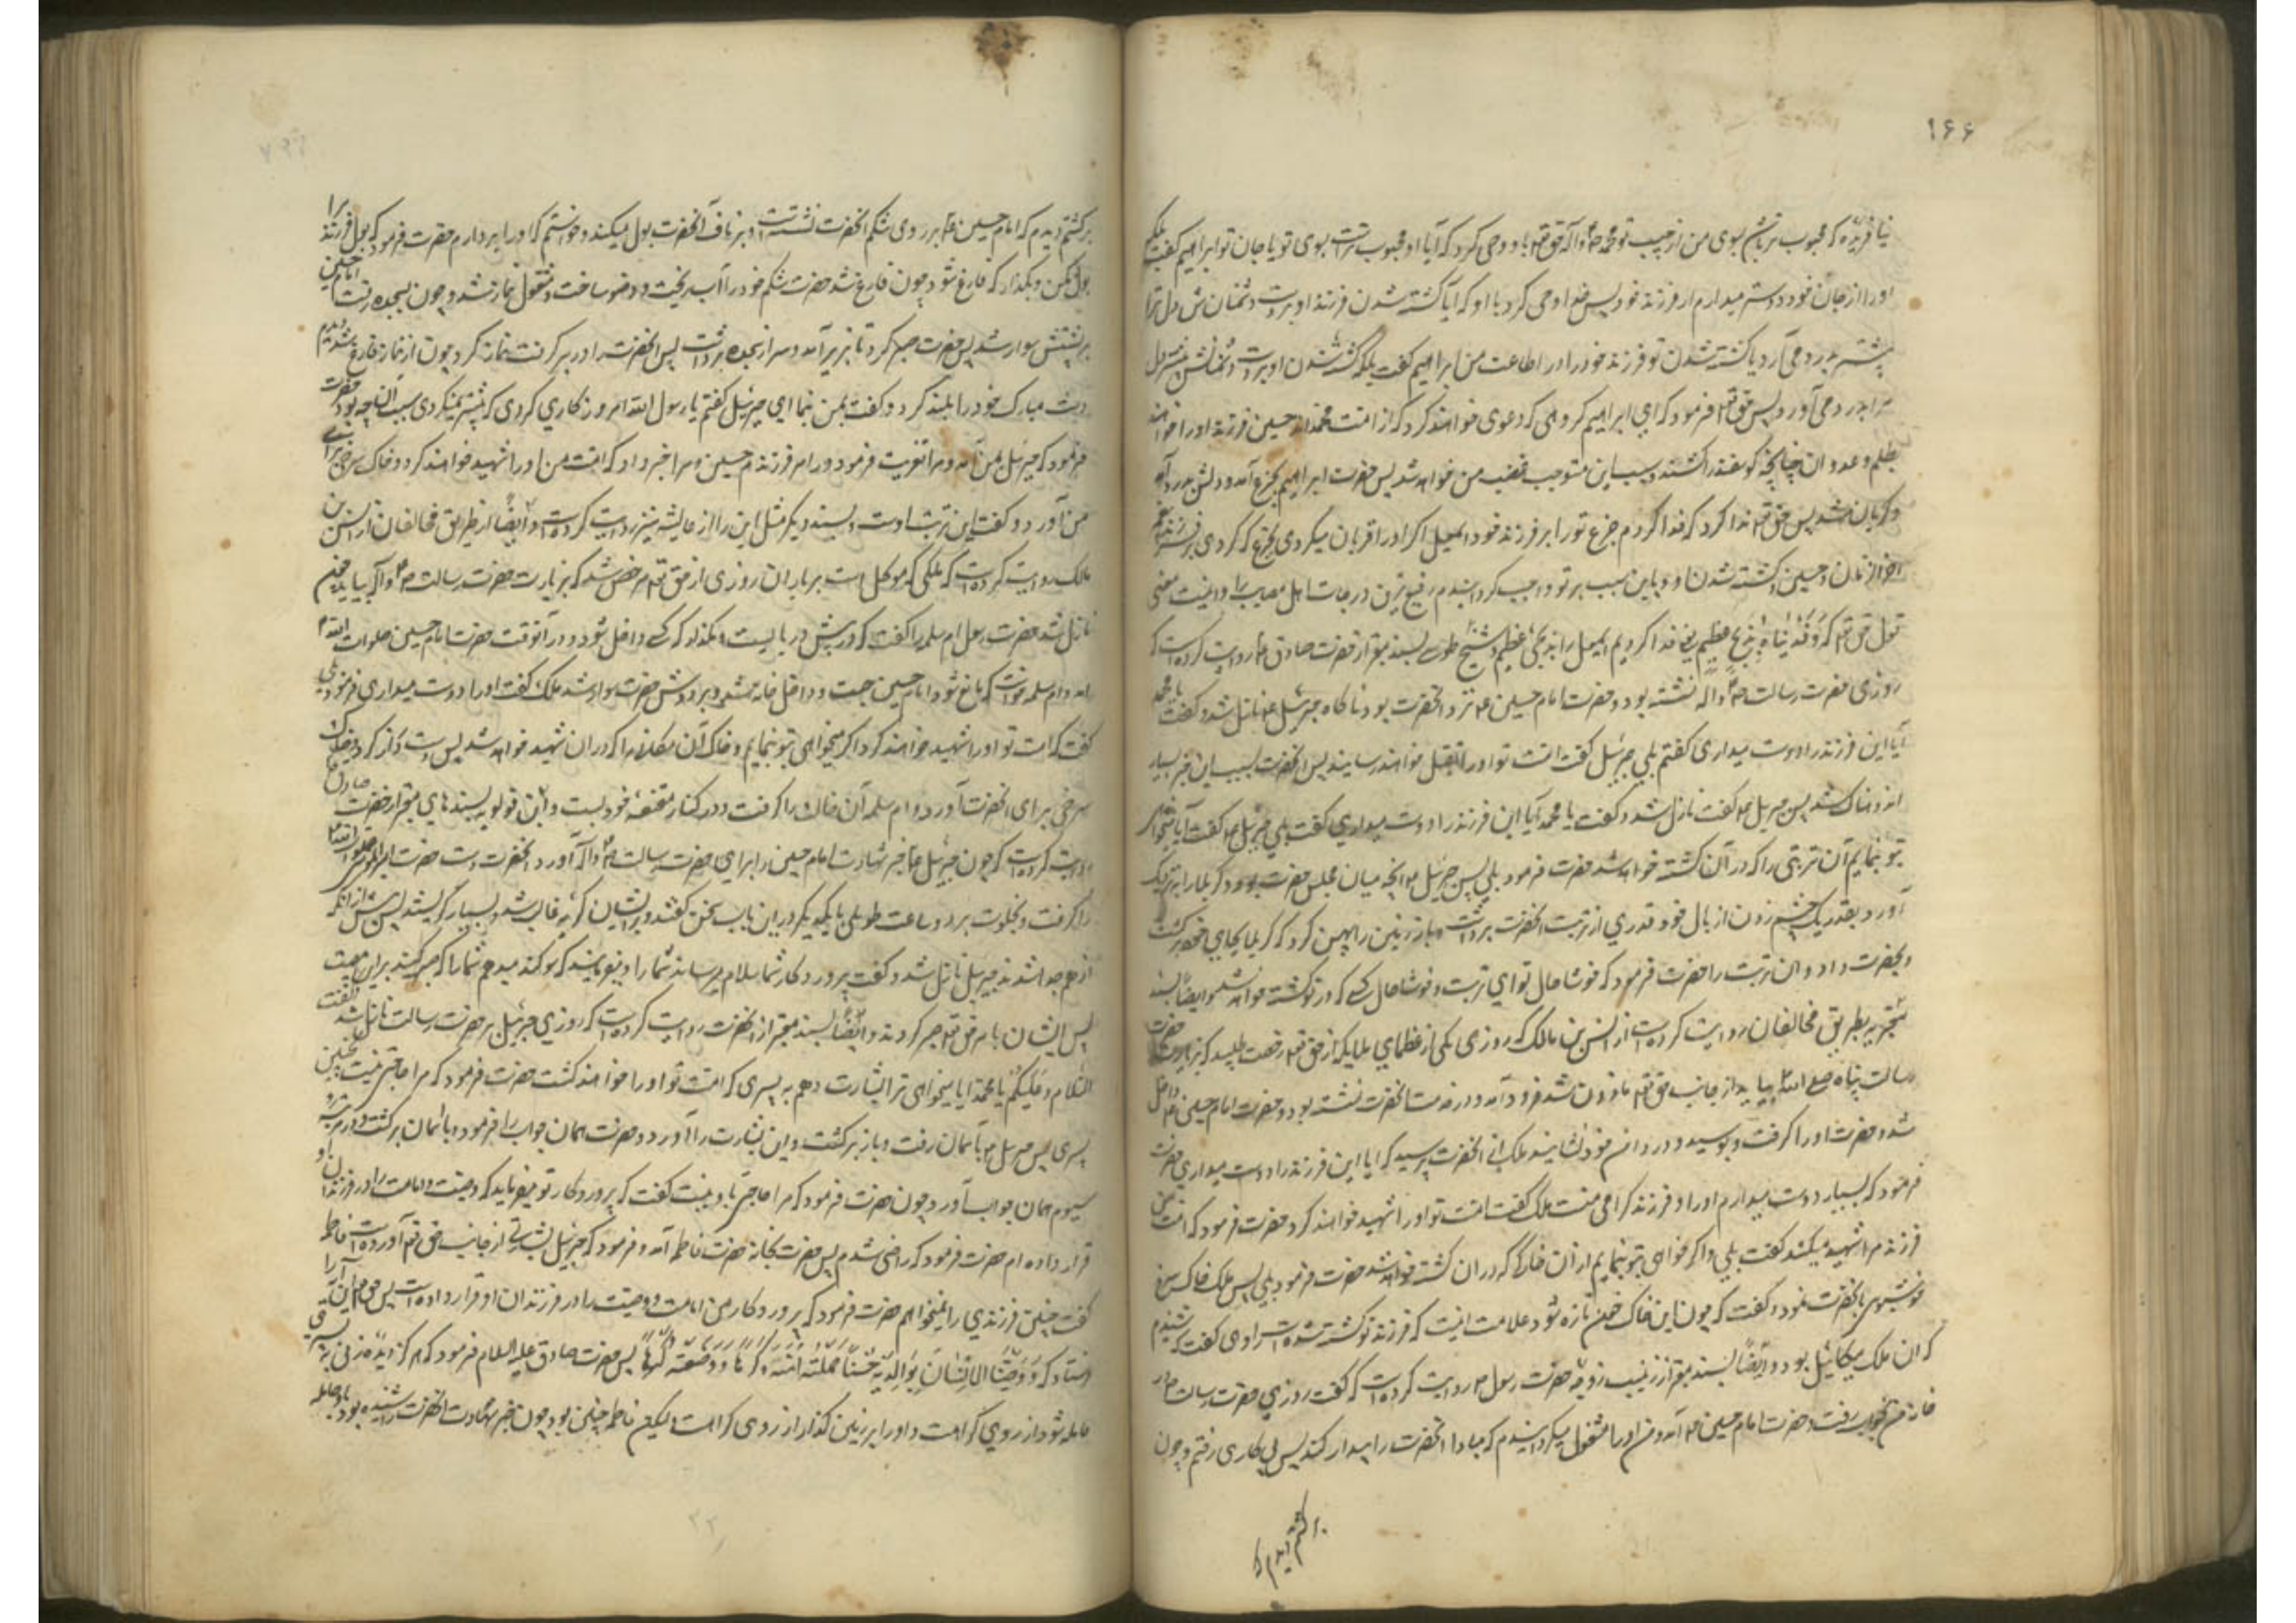 ۱۶۶
نیافریده که محبوب تر باشم بسوی من از حبیب تو محمد ص و آله حق تعالی باو وحی کرد که آیا او محبوب تر است بسوی تو یا جان تو ابراهیم گفت بلکه
او را از جان خود دوستر میدارم از فرزند خود پس خدا وحی کرد با او که آیا کشته شدن فرزند او بر دست دشمنانش دل ترا
بیشتر بدرد می آرد یا کشته شدن تو فرزند خود را در اطاعت من ابراهیم گفت بلکه کشته شدن او بر دست دشمنانش بیشتر دل
مرا بدرد می آورد پس حق تعالی فرمود که ای ابراهیم گروهی که دعوی خواهند کرد که از امت محمدند حسین فرزند او را خواهند
بظلم و عدوان چنانچه گوسفند را کشند و بسبب این متوجب غضب من خواهند شد پس حضرت ابراهیم بجزع آمد و دلش بدرد آمد
و گریان شد پس حق تعالی ندا کرد که فدا کردم جزع تو را بر فرزند خود اسمعیل اگر او را قربان میکردی بجزع که کردی بر فرزند پیغمبر
آخر الزمان حسین و کشته شدن او و باین سبب بر تو واجب گردانیدم رفیع ترین درجات اهل مصیبت را و اینست معنی
قول حق تعالی که وَفَدَیْنَاهُ بِذِبْحٍ عَظِیمٍ یعنی فدا کردیم اسمعیل را بذبحی عظیم و شیخ طوسی بسند معتبر از حضرت صادق ع روایت کرده است که
روزی حضرت رسالت ص و آله نشسته بود و حضرت امام حسین ع نزد آنحضرت بود ناگاه جبرئیل ع نازل شد و گفت یا محمد
آیا این فرزند را دوست میداری گفتم بلی جبرئیل گفت امت تو او را بقتل خواهند رسانید پس آنحضرت بسبب این خبر بسیار
اندوهناک شد پس جبرئیل گفت نازل شد و گفت یا محمد آیا این فرزند را دوست میداری گفت بلی جبرئیل گفت آیا میخواهی
بتو نمایم آن تربتی را که در آن کشته خواهد شد حضرت فرمود بلی پس جبرئیل آنچه میان مجلس حضرت بود و کربلا را بنزدیک
آورد بقدر یک چشم زدن از بال خود قدری از تربت آنحضرت برداشت و باز زمین را پهن کرد که کربلا بجای خود برگشت
و بحضرت داد آن تربت را حضرت فرمود که خوشا حال تو ای تربت و خوشا حال کسی که در تو کشته خواهد شد و ایضا بسند
معتبر بطریق مخالفان روایت کرده است از انس بن مالک که روزی یکی از عظمای ملایکه از حق تعالی رخصت طلبید که بزیارت حضرت
رسالت پناه صلی الله بیاید از جانب حق تعالی ماذون شد فرود آمد و در خدمت آنحضرت نشسته بود و حضرت امام حسین ع داخل
شد و حضرت او را گرفت و بوسید و در دامن خود نشانید ملک از آنحضرت پرسید که آیا این فرزند را دوست میداری حضرت
فرمود که بسیار دوست میدارم او را و فرزند گرامی منست ملک گفت امت تو او را شهید خواهند کرد حضرت فرمود که امت من
فرزند مرا شهید میکنند گفت بلی و اگر خواهی بتو بنمایم از آن خاک که در آن کشته خواهد شد حضرت فرمود بلی پس ملک خاک سرخ
خوشبوی بآنحضرت نمود و گفت که چون این خاک خون تازه شود علامت اینست که فرزند تو کشته شده است راوی گفت که شنیدم
که آن ملک میکائیل بود و ایضا بسند معتبر از زینب زوجه حضرت رسول ص روایت کرده است که گفت روزی حضرت رسالت ص در
خانه من بخواب رفت و حضرت امام حسین ع آمد و من او را مشغول میگردانیدم که مبادا آنحضرت را بیدار کند پس پی کاری رفتم و چون
برگشتم دیدم که
برگشتم دیدم که امام حسین ع بر روی شکم آنحضرت نشسته است و بر ناف آنحضرت بول میکند و خواستم که او را بردارم حضرت فرمود که بول فرزند مرا
بول مکن و بگذار که فارغ شود چون فارغ شد حضرت شکم خود را آب ریخت و وضو ساخت و مشغول نماز شد و چون بسجده رفت امام حسین
بر پشتش سوار شد پس حضرت صبر کرد تا بزیر آمد و سر از سجده برداشت پس آنحضرت او را در بر گرفت نماز کرد چون از نماز فارغ شد دیدم
دست مبارک خود را بلند کرد و گفت بمن بنما ای جبرئیل گفتم یا رسول الله امروز کاری کردی که پیشتر نمیکردی سبب آن چه بود حضرت
فرمود که جبرئیل بمن آمد و مرا تعزیت فرمود در امر فرزندم حسین و مرا خبر داد که امت من او را شهید خواهند کرد و خاک سرخی برای
من آورد و گفت این تربت اوست و بسند دیگر مثل این را از عایشه نیز روایت کرده است و ایضا از طریق مخالفان از انس بن
مالک روایت کرده است که ملکی که موکل است بر باران روزی از حق تعالی مرخص شد که بزیارت حضرت رسالت ص و آله بیاید چون
نازل شد حضرت رسول ام سلمه را گفت که در پیش در بایست و مگذار که کسی داخل شود و در آنوقت حضرت امام حسین صلوات الله
آمد و ام سلمه خواست که مانع شود امام حسین جست و داخل خانه شد و بر دوش حضرت سوار شد ملک گفت او را دوست میداری فرمود بلی
گفت که امت تو او را شهید خواهند کرد اگر میخواهی بتو بنمایم و خاک آن مکان را که در آن شهید خواهد شد پس دست دراز کرد و خاک
سرخی برای آنحضرت آورد و ام سلمه آن خاک را گرفت و در کنار مقنعه خود بست و ابن قولویه بسندهای معتبر از حضرت صادق ع
روایت کرده است که چون جبرئیل ع خبر شهادت امام حسین را برای حضرت رسالت ص و آله آورد آنحضرت دست حضرت امیرالمؤمنین
را گرفت و بخلوت برد و ساعت طویلی با یکدیگر در این باب سخن گفتند و بر ایشان گریه غالب شد و بسیار گریستند پس پیش از آنکه
از هم جدا شدند جبرئیل نازل شد و گفت پروردگار شما سلام میرساند شما را و میفرماید که سوگند میدهم شما را که صبر کنید بر این مصیبت
پس ایشان بامر حق تعالی صبر کردند و ایضا بسند معتبر از آنحضرت روایت کرده است که روزی جبرئیل بر حضرت رسالت نازل شد و گفت
السلام علیکم یا محمد آیا میخواهی ترا بشارت دهم به پسری که امت تو او را خواهند کشت حضرت فرمود که مرا حاجتی نیست بچنین
پسری پس جبرئیل بآسمان رفت و باز برگشت و این بشارت را آورد و حضرت همان جواب را فرمود و بآسمان برگشت و در مرتبه
سیوم همان جواب آورد چون حضرت فرمود که مرا حاجتی باو نیست گفت که پروردگار تو میفرماید که وصیت و امامت را در فرزندان او
قرار داده ام حضرت فرمود که راضی شدم پس حضرت بخانه حضرت فاطمه آمد و فرمود که جبرئیل بشارتی از جانب حق تعالی آورده است فاطمه
گفت چنین فرزندی را نمیخواهم حضرت فرمود که پروردگار من امامت و وصیت را در فرزندان او قرار داده است پس حق تعالی این آیه را
فرستاد که وَوَصَّیْنَا الْإِنْسَانَ بِوَالِدَیْهِ حُسْنًا حَمَلَتْهُ أُمُّهُ کُرْهًا وَوَضَعَتْهُ کُرْهًا پس حضرت صادق علیه السلام فرمود که هرگز دیده زنی به پسری
حامله شود از روی کراهت و او را بر زمین گذارد از روی کراهت ولیکن فاطمه چنین بود چون خبر شهادت آنحضرت را شنیده بود باو حامله